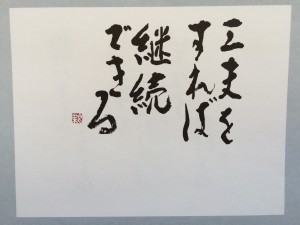 工夫を
すれば
継続
できる